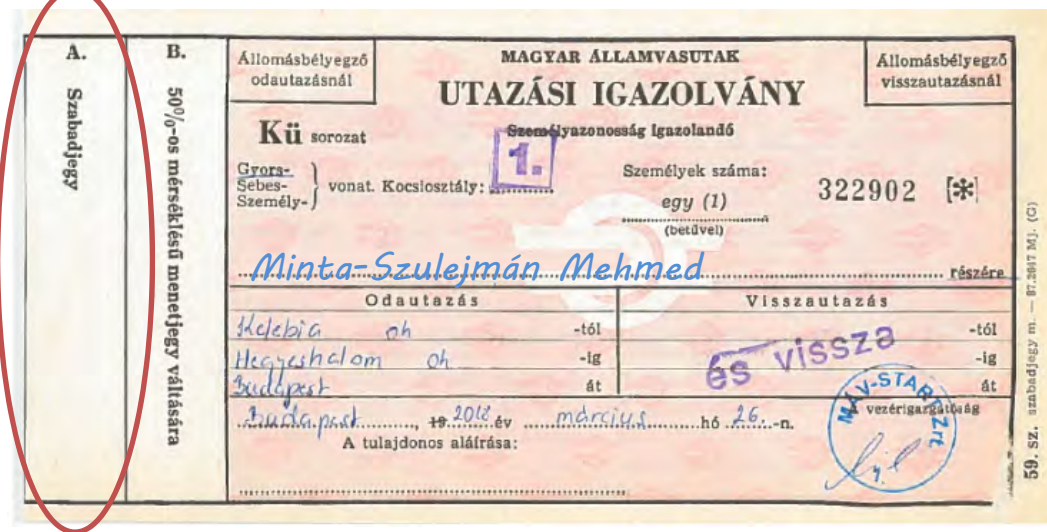 A.
Szabadjegy
B.
50%-os mérséklésű menetjegy váltására
Állomásbélyegző
odautazásnál
MAGYAR ÁLLAMVASUTAK
UTAZÁSI IGAZOLVÁNY
Állomásbélyegző
visszautazásnál
Kü sorozat
Személyazonosság igazolandó
1.
Gyors-
Sebes-
Személy-
vonat. Kocsiosztály:
Személyek száma:
egy (1)
(betűvel)
322902 [*]
Minta-Szulejmán Mehmed részére
Odautazás
Visszautazás
Kelebia oh -tól
-tól
Hegyeshalom oh -ig
és vissza
-ig
Budapest át
át
Budapest, 19 2018 év március hó 26.-n.
A vezérigazgatóság
MÁV-START Zrt
A tulajdonos aláírása:
59. sz. szabadjegy m. — 87.2617 MJ. (G)